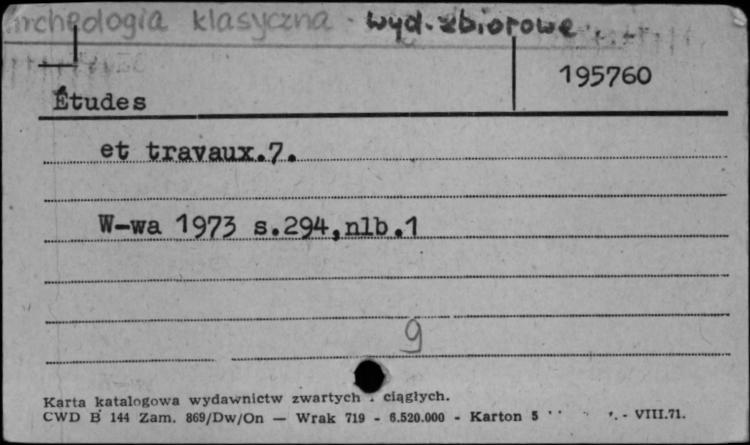 Archeologia klasyczna - wyd. zbiorowe
195760
Études
et travaux.7.
W-wa 1973 s.294,nlb.1
9
Karta katalogowa wydawnictw zwartych i ciągłych.
CWD B 144 Zam. 869/Dw/On — Wrak 719 - 6.520.000 - Karton 5 - VIII.71.